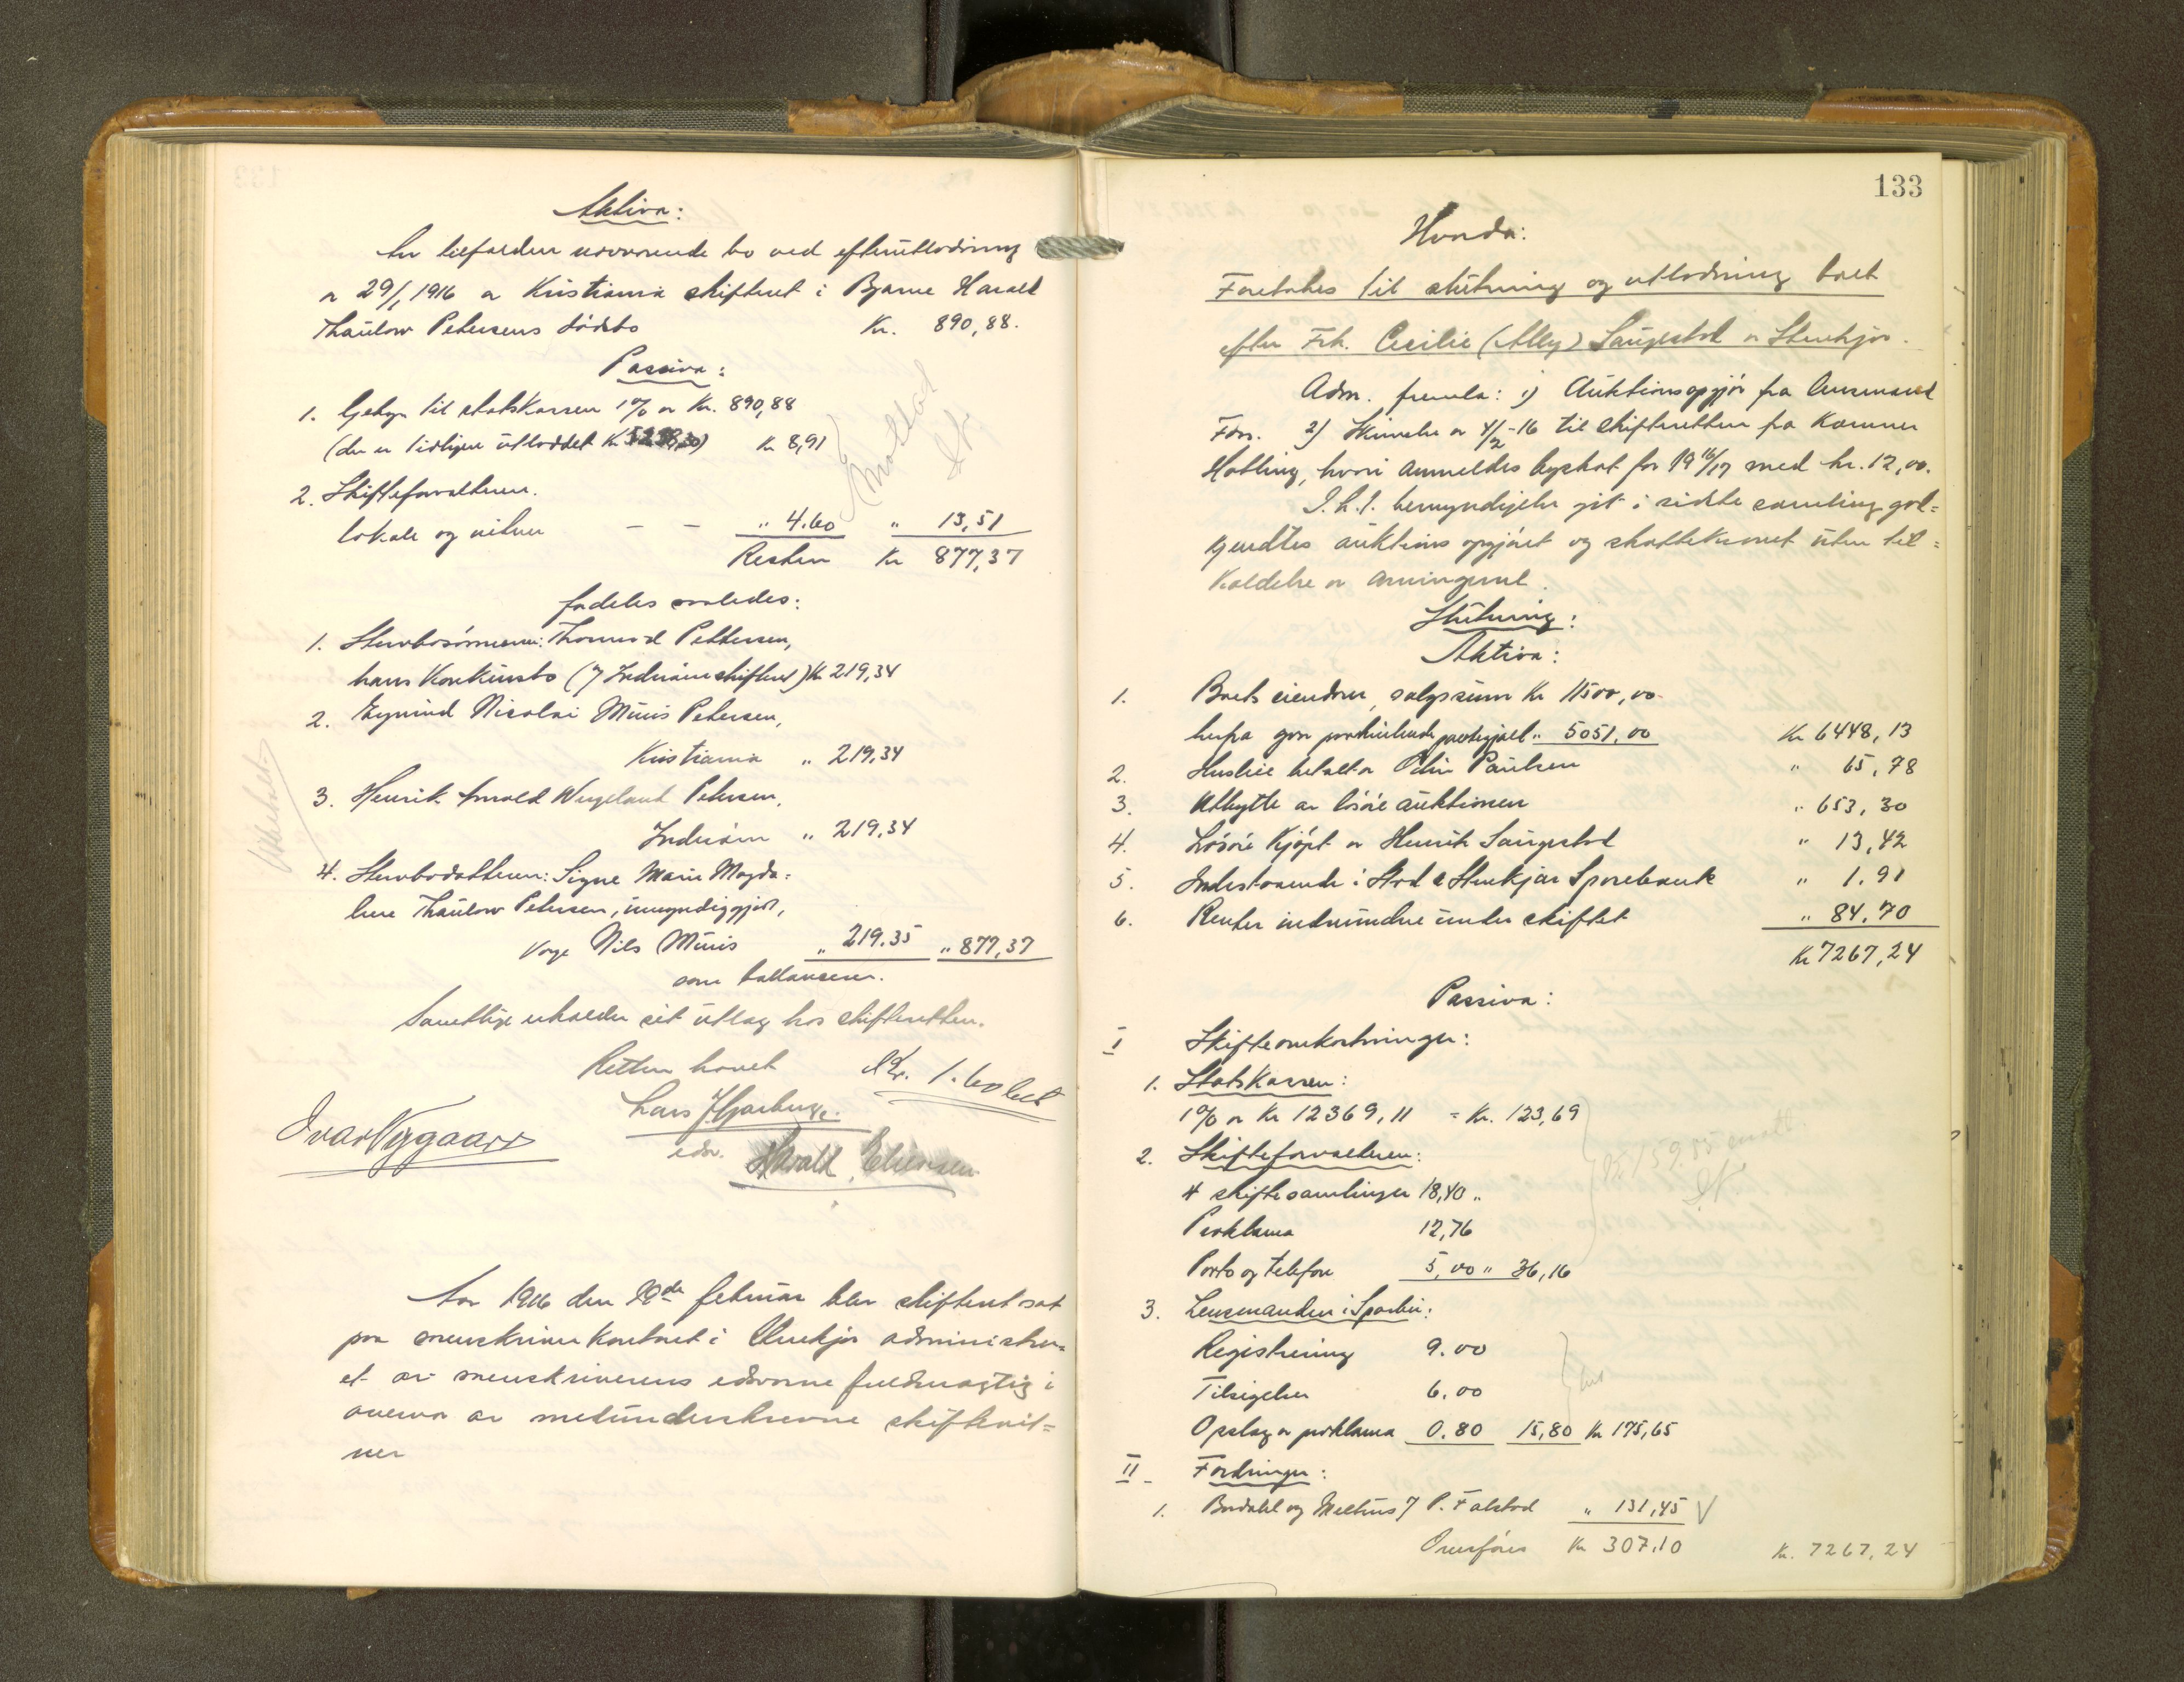 Aktiva:
Er tilfalden nærværende bo ved efterutlodning
av 29/1 1916 av Kristiania skifteret i Bjarne Harald
Thaulow Petersens dødsbo Kr. 890,88.
Passiva:
1. Gebyr til statskassen 1% av Kr. 890,88
(der er tidligere utloddet Kr ) Kr 8,91
2. Skifteforvalteren.
lokale og vitner — — " 4.60 " 13,51
Resten Kr 877,37
Anvist
fordeles saaledes:
1. Stervbosønnerne: Thormod Pettersen,
hans konkursbo (v/ Inderøen skifteret) Kr 219,34
2. Eyvind Nicolai Müus Petersen,
Kristiania " 219,34
3. Henrik Arnold Wergeland Petersen,
Inderøen " 219,34
4. Stervbodatteren: Signe Marie Magda-
lene Thaulow Petersen, umyndiggjort,
verge Nils Müus " 219.35 " 877,37
som ballanserer.
Utbetalt
Samtlige erholder sit utlæg hos skifteretten.
Retten hævet Kr. 1.60
Lars
edsv.
Ivar Nygaard Harald
Aar 1916 den 29de februar blev skifteret sat
paa sorenskriverkontoret i Stenkjær administre-
et av sorenskriverens edsvorne fuldmægtig i
overvær av medunderskrevne skiftevit-
ner
133
Hvorda:
Foretokes til slutning og utlodning boet
efter Frk. Cecilie (Ally) Saugestad av Stenkjær.
Adm. fremla: 1) Auktionsopgjør fra lensmand
Foss. 2) Skrivelse av 4/2-16 til skifteretten fra Kæmner
Hatling, hvori anmeldes byskat for 1916/17 med kr. 12,00.
I.h.t. bemyndigelse git i sidste samling god-
kjendtes auktionsopgjøret og skattekravet uten til-
kaldelse av arvingerne.
Slutning:
Aktiva:
1. Boets eiendom, salgssum Kr 11500,00
herfra gaar paahvilende pantegjæld " 5051,00 Kr 6448,13
2. Husleie betalt av Odin Paulsen " 65,78
3. Utbytte av løsøreauktionen " 653,30
4. Løsøre kjøpt av Henrik Saugestad " 13,42
5. Indestaaende i Stod & Stenkjær Sparebank " 1.91
6. Renter indvundne under skiftet " 84.70
Kr 7267,24
Passiva:
I Skifteomkostninger:
1. Statskassen:
1% av Kr 12369,11 = Kr. 123,69
2. Skifteforvalteren:
4 skiftesamlinger 18,40 "
Proklama 12,76
Porto og telefon 5,00 " 36,16
Kr. 159.85
3. Lensmanden i Sparbu:
Registrering 9.00
Tilsigelser 6.00
Opslag av proklama 0.80 15,80 Kr 175,65
II Fordringer:
1. Bordahl og Melhus v/ P. Falstad " 131,45 V
Overføres Kr 307.10 Kr. 7267,24